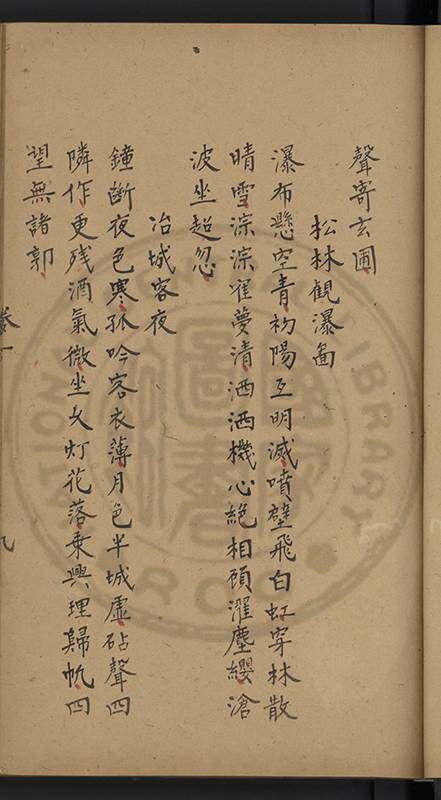 聲寄玄圃
松林觀瀑圖
瀑布懸空青初陽互明滅噴壁飛白虹穿林散
晴雪淙淙寉夢清洒洒機心絕相顧濯塵纓滄
波坐超忽
冶城客夜
鐘斷夜色寒孤吟客衣薄月色半城虛砧聲四
隣作更残酒氣微坐久灯花落乗興理歸帆四
望無諸郭